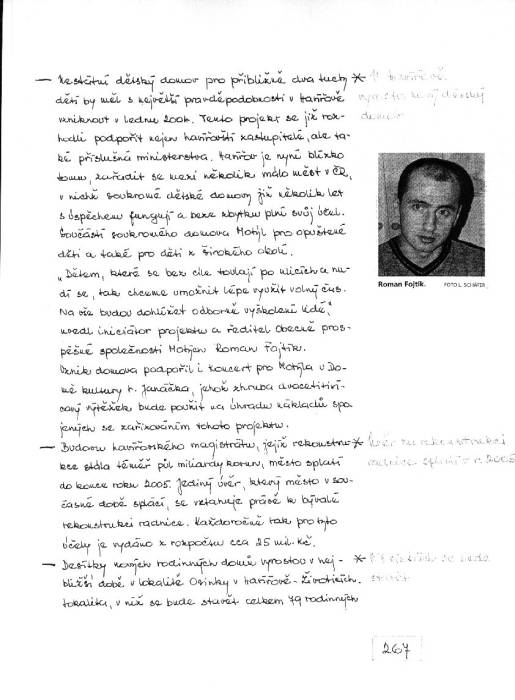 — Nestátní dětský domov pro přibližně dva tucty * V Havířově
dětí by měl s největší pravděpodobností v Havířově vyroste nový dětský
vzniknout v lednu 2006. Tento projekt se již roz- domov
hodli podpořit nejen havířovští zastupitelé, ale ta-
ké příslušná ministerstva. Havířov je nyní blízko
tomu, zařadit se mezi několik málo měst v ČR,
v nichž soukromé dětské domovy již několik let
s úspěchem fungují a beze zbytku plní svůj účel.
Součástí soukromého domova Motýl pro opuštěné
děti a také pro děti z širokého okolí.
„Dětem, které se bez cíle toulají po ulicích a nu-
dí se, tak chceme umožnit lépe využít volný čas.
Na vše budou dohlížet odborně vyškolení lidé,"
uvedl iniciátor projektu a ředitel obecně pros-
pěšné společnosti Motýlek Roman Fojtík.
Vznik domova podpořil i koncert pro Motýla v Do-
mě kultury L. Janáčka, jehož zhruba dvacetitisí-
cový výtěžek bude použit na úhradu nákladů spo-
jených se zařizováním tohoto projektu.
Roman Fojtík. FOTO L. SCHÄFER
— Budovu havířovského magistrátu, jejíž rekonstruk- * úvěr na rekonstrukci
kce stála téměř půl miliardy korun, město splatí radnice splatí v r. 2005
do konce roku 2005. Jediný úvěr, který město v sou-
časné době splácí, se vztahuje právě k bývalé
rekonstrukci radnice. Každoročně tak pro tyto
účely je vydáno z rozpočtu cca 25 mil. Kč.
— Desítky nových rodinných domů vyrostou v nej- * se bude
bližší době v lokalitě Osinky v Havířově-Životicích. stavět
Lokalita, v níž se bude stavět celkem 79 rodinných
267